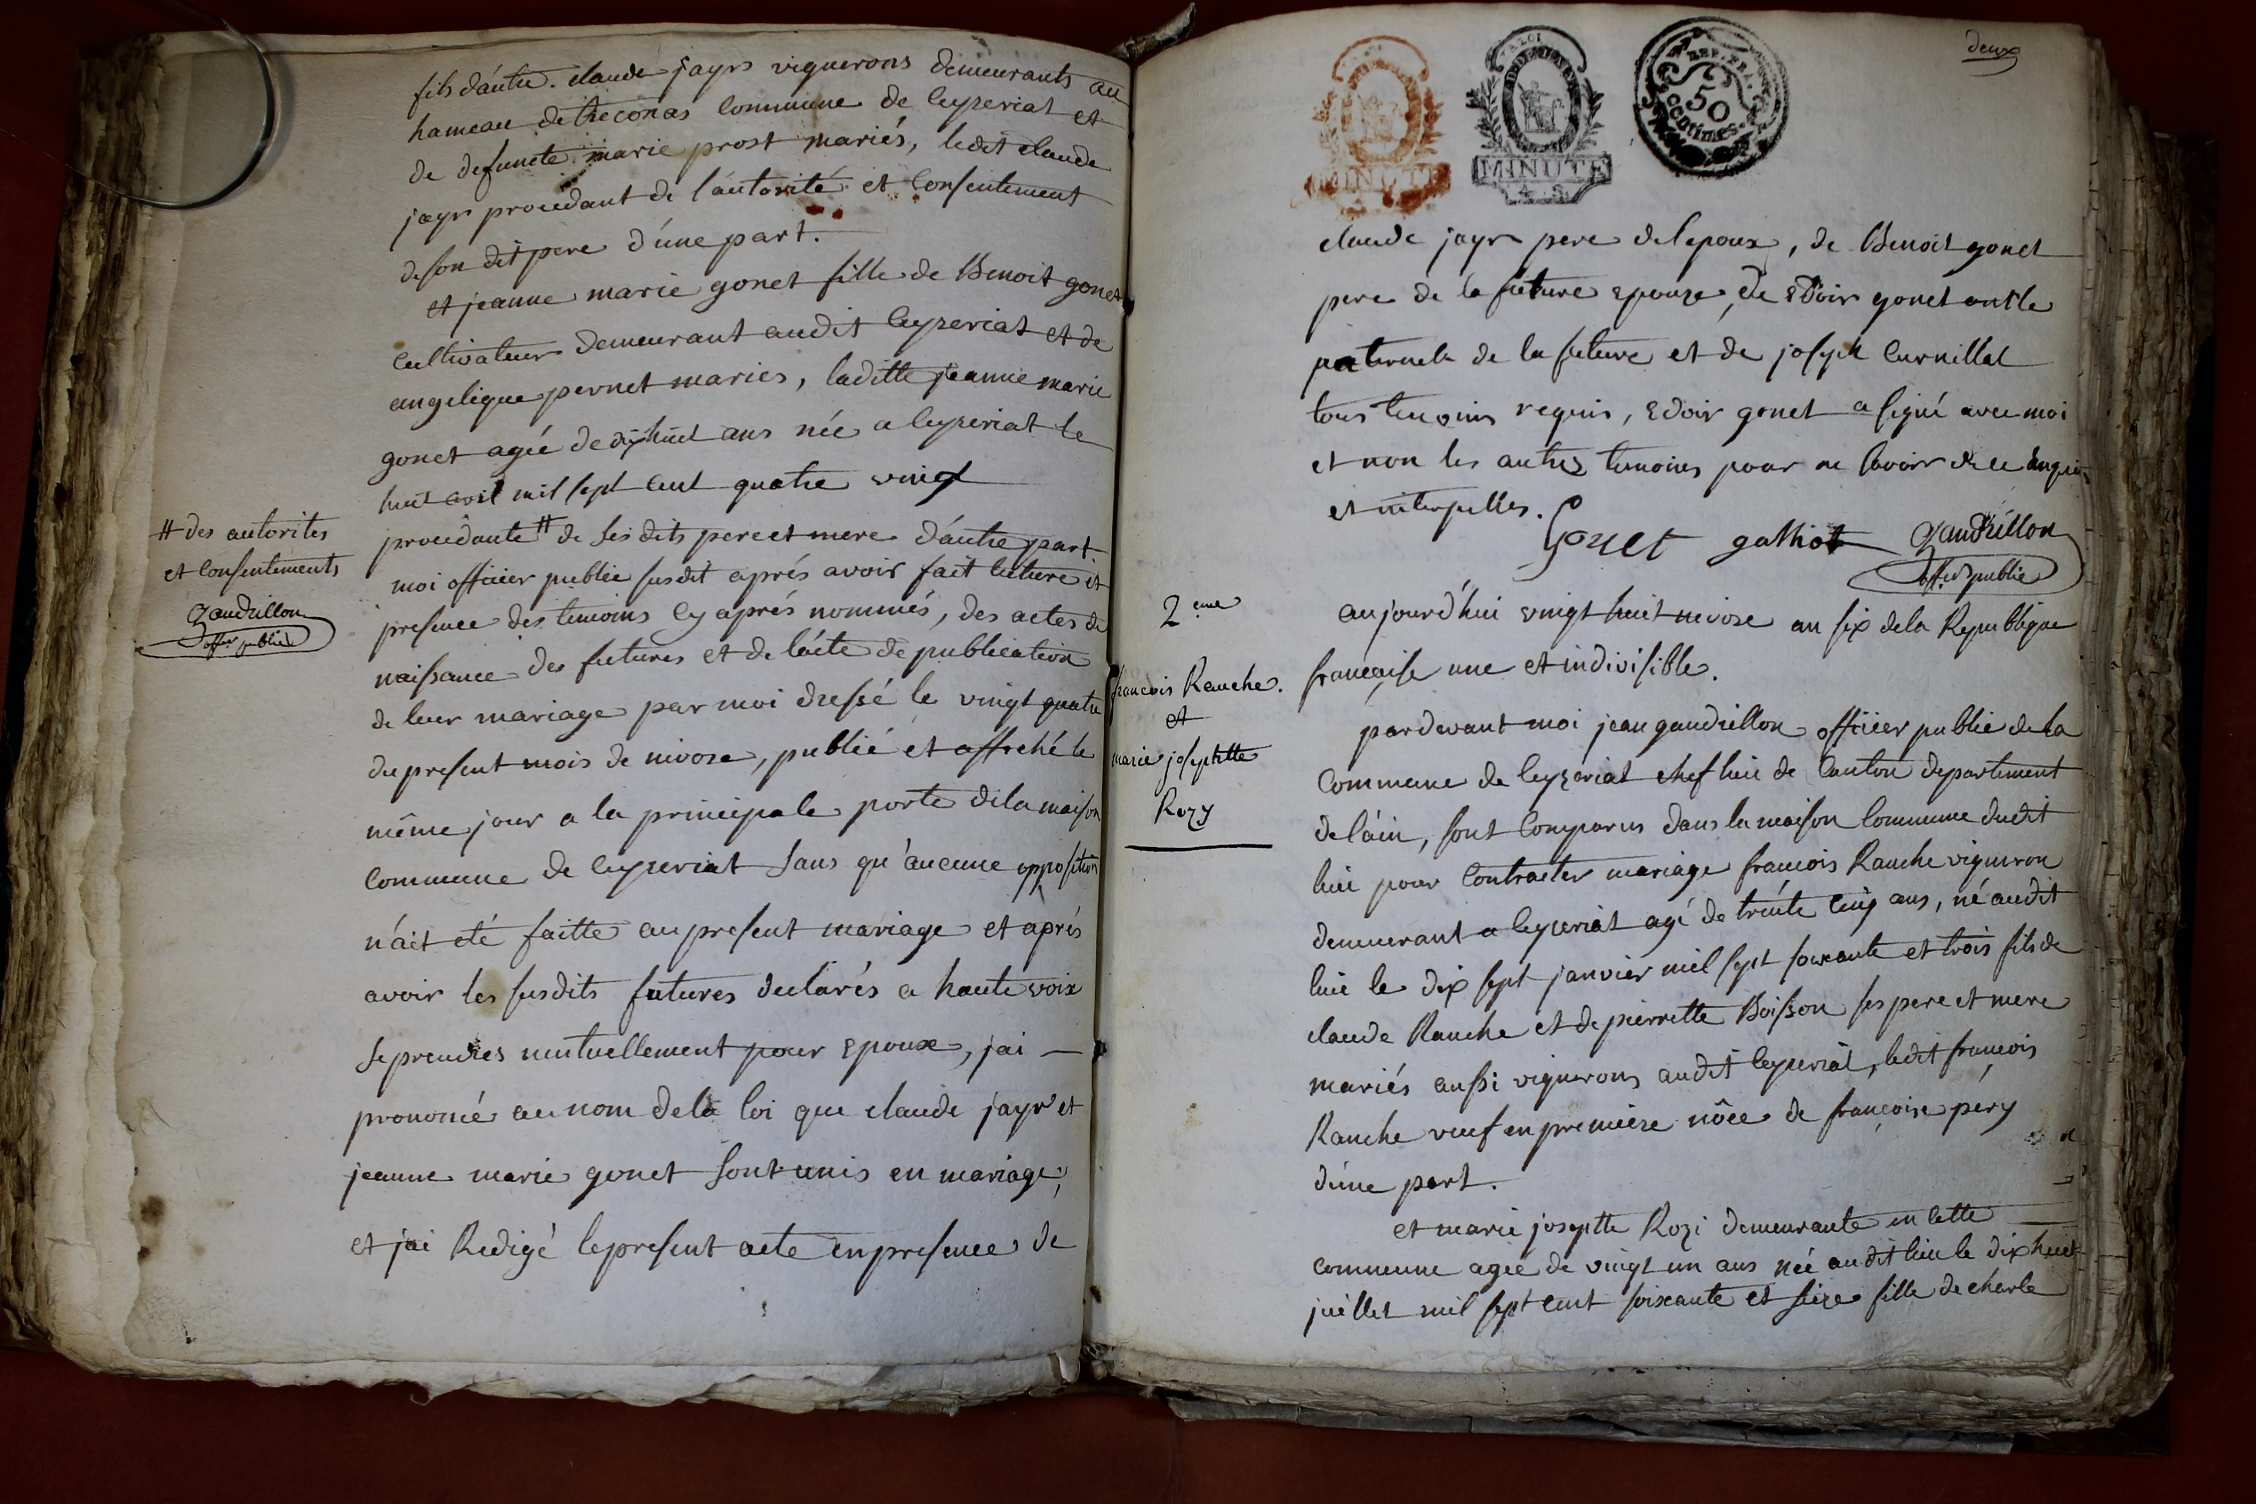 fils d'autre claude jayr vignerons demeurants au
hameau de treconas commune de Ceyzeriat et
de defuncte marie prost mariés, ledit claude
jayr procedant de l'autorité et consentement
de son dit pere d'une part.
et jeanne marie gonet fille de Benoit gonet
cultivateur demeurant audit Ceyzeriat et de
angelique pernet mariés, laditte jeanne marie
gonet agée de dixhuit ans née a Ceyzeriat le
huit avril mil sept cent quatre vingt
procedante # de ses dits pere et mere d'autre part
# des autorités
et consentements
gaudrillon
offer public
moi officier public susdit aprés avoir fait lecture et
presence des temoins cy aprés nommés, des actes de
naissance des futures et de l'acte de publication
de leur mariage par moi dressé le vingt quatre
du present mois de nivose, publié et affiché le
même jour a la principale porte de la maison
commune de Ceyzeriat sans qu'aucune opposition
n'ait eté faitte au present mariage et aprés
avoir les susdits futures declarés a haute voix
se prendres mutuellement pour epoux, jai
prononcé au nom de la loi que claude jayr et
jeanne marie gonet sont unis en mariage,
et jai Redigé le present acte en presence de
deux
LA LOI
MINUTE
MINUTE
REP. FRA.
50
centimes
claude jayr pere de l'epoux, de Benoit gonet
pere de la future epouze, de Edoir gonet oncle
paternele de la future et de joseph Curnillat
tous temoins requis, Edoir gonet a signé avec moi
et non les autres temoins pour ne savoir de ce enquis
et interpelles.
Gonet gathiot gaudrillon
offer public
2eme
francois Ranche.
et
marie josephtte
Rozy
aujourd'hui vingt huit nivose an six de la Republique
française une et indivisible.
pardevant moi jean gaudrillon officier public de la
commune de Ceyzeriat chef lieu de Canton departement
de l'ain, sont Comparus dans la maison Commune dudit
lieu pour Contracter mariage francois Ranche vigneron
demeurant a Ceyzeriat agé de trente cinq ans, né audit
lieu le dix sept janvier mil sept soixante et trois fils de
claude Ranche et de pierrette Boisson ses pere et mere
mariés aussi vignerons audit Ceyzeriat, ledit françois
Ranche veuf en premiere nôce de françoise pery
d'une part.
et marie joseptte Rozi demeurante en Cette
commune agée de vingt un ans née audit lieu le dix huit
juillet mil sept cent soixante et seize fille de charle